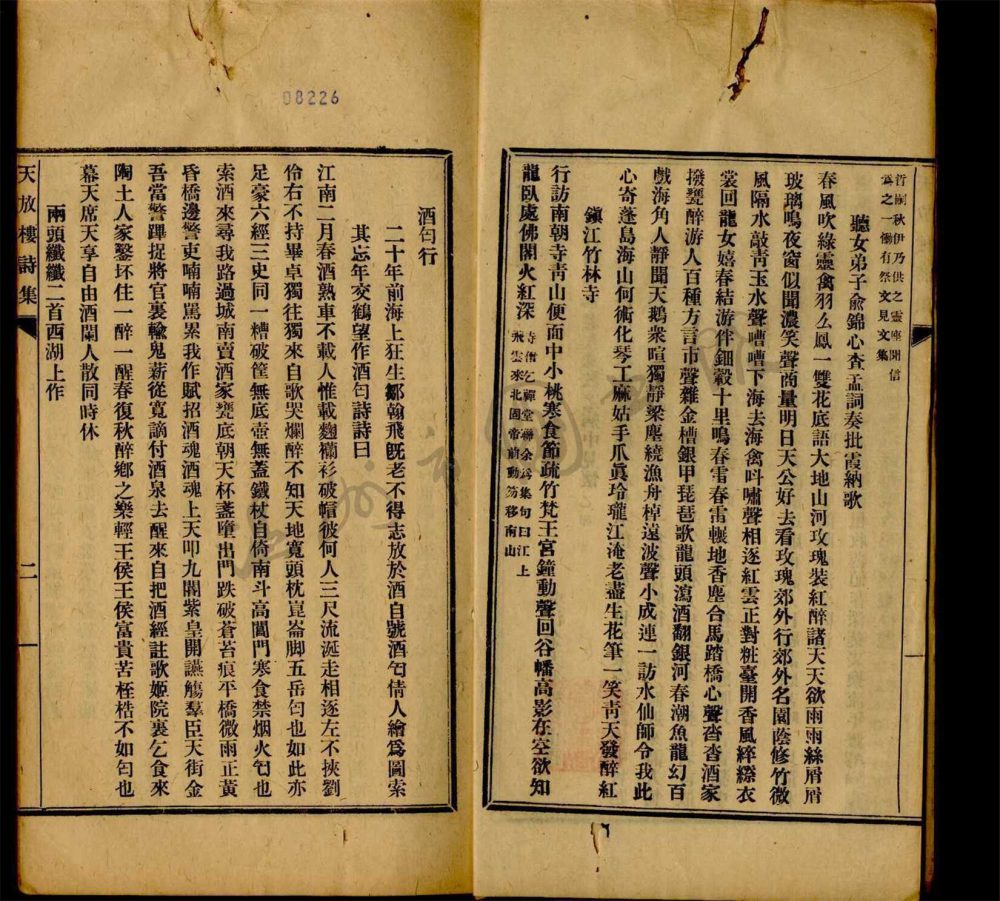 哲嗣秋伊乃供之靈座聞信
爲之一慟有祭文見文集
聽女弟子兪錦心查孟詞奏批霞納歌
春風吹綠靈禽羽么鳳一雙花底語大地山河玫瑰裝紅醉諸天天欲雨雨絲屑屑
玻璃鳴夜窗似聞濃笑聲商量明日天公好去看玫瑰郊外行郊外名園蔭修竹微
風隔水敲靑玉水聲嘈嘈下海去海禽呌嘯聲相逐紅雲正對粧臺開香風綷縩衣
裳回龍女嬉春結游伴鈿轂十里鳴春雷春雷輾地香塵合馬踏橋心聲沓沓酒家
撥甕醉游人百種方言市聲雜金槽銀甲琵琶歌龍頭瀉酒翻銀河春潮魚龍幻百
戲海角人靜聞天鵝衆喧獨靜梁塵繞漁舟棹遠波聲小成連一訪水仙師令我此
心寄蓬島海山何術化琴工麻姑手爪眞玲瓏江淹老盡生花筆一笑靑天發醉紅
鎭江竹林寺
行訪南朝寺靑山便面中小桃寒食節疏竹梵王宮鐘動聲回谷幡高影在空欲知
龍臥處佛閣火紅深
寺僧乞禪堂聯余爲集句曰江上
飛雲來北固帝前動笏移南山
08226
酒匄行
二十年前海上狂生鄒翰飛旣老不得志放於酒自號酒匄倩人繪爲圖索
其忘年交鶴望作酒匄詩詩曰
江南二月春酒熟車不載人惟載麴襤衫破帽彼何人三尺流涎走相逐左不挾劉
伶右不持畢卓獨往獨來自歌哭爛醉不知天地寬頭枕崑崙脚五岳匄也如此亦
足豪六經三史同一糟破筐無底壺無蓋鐵杖自倚南斗高閶門寒食禁烟火匄也
索酒來尋我路過城南賣酒家甕底朝天杯盞墮出門跌破蒼苔痕平橋微雨正黃
昏橋邊警吏喃喃罵累我作賦招酒魂酒魂上天叩九閽紫皇開讌觴羣臣天街金
吾當警蹕捉將官裏輸鬼薪從寬謫付酒泉去醒來自把酒經註歌姬院裏乞食來
陶土人家鑿坏住一醉一醒春復秋醉鄉之樂輕王侯王侯富貴苦桎梏不如匄也
幕天席天享自由酒闌人散同時休
兩頭纖纖二首西湖上作
天放樓詩集
二